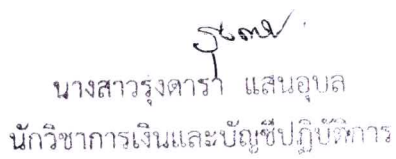 นางสาวรุ่งดารา แสนอุบล
นักวิชาการเงินและบัญชีปฏิบัติการ